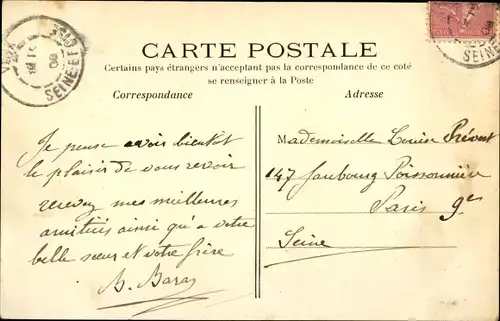 CARTE POSTALE
Certains pays étrangers n'acceptant pas la correspondance de ce coté
se renseigner à la Poste
Correspondance
Adresse
Je pense avoir bientot
le plaisir de vous revoir
recevez mes meilleures
amitiés ainsi qu'a votre
belle sœur et votre frère
B. Baras
Mademoiselle Louise Prévost
147 faubourg Poissonnière
Paris 9e
Seine
SEINE-ET
SEINE